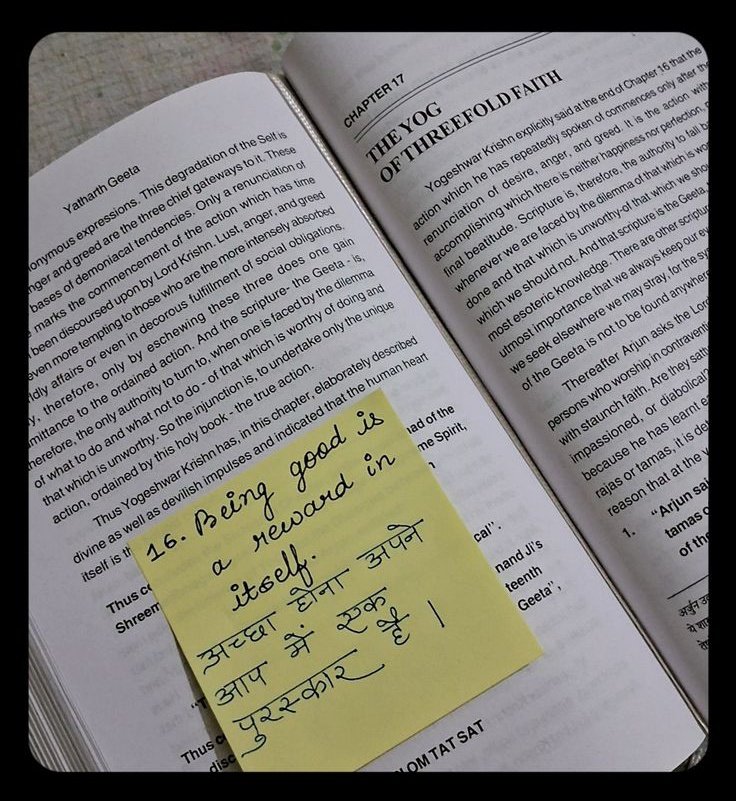 Yatharth Geeta
onymous expressions. This degradation of the Self is
nger and greed are the three chief gateways to it. These
bases of demoniacal tendencies. Only a renunciation of
marks the commencement of the action which has time
been discoursed upon by Lord Krishn. Lust, anger, and greed
even more tempting to those who are the more intensely absorbed
ldly affairs or even in decorous fulfillment of social obligations,
y, therefore, only by eschewing these three does one gain
mittance to the ordained action. And the scripture- the Geeta - is,
herefore, the only authority to turn to, when one is faced by the dilemma
of what to do and what not to do - of that which is worthy of doing and
that which is unworthy. So the injunction is, to undertake only the unique
action, ordained by this holy book - the true action.
Thus Yogeshwar Krishn has, in this chapter, elaborately described
divine as well as devilish impulses and indicated that the human heart
itself is th
Thus co
Shreem
"T
Thus c
disc
ad of the
me Spirit,
cal".
nand Ji's
teenth
Geeta",
OM TAT SAT
16. Being good is
a reward in
itself.
अच्छा होना अपने
आप में एक
पुरस्कार है ।
CHAPTER 17
THE YOG
OF THREEFOLD FAITH
Yogeshwar Krishn explicitly said at the end of Chapter 16 that the
action which he has repeatedly spoken of commences only after the
renunciation of desire, anger, and greed. It is the action, with
accomplishing which there is neither happiness nor perfection,
final beatitude. Scripture is, therefore, the authority to fall b
whenever we are faced by the dilemma of that which is wor
done and that which is unworthy-of that which we shou
which we should not. And that scripture is the Geeta,
most esoteric knowledge. There are other scriptur
utmost importance that we always keep our ey
we seek elsewhere we may stray, for the sy
of the Geeta is not to be found anywhere
Thereafter Arjun asks the Lord
persons who worship in contraventi
with staunch faith. Are they satt
impassioned, or diabolical?
because he has learnt ea
rajas or tamas, it is det
reason that at the v
1. "Arjun sai
tamas o
of the
अर्जुन उ
ये शा